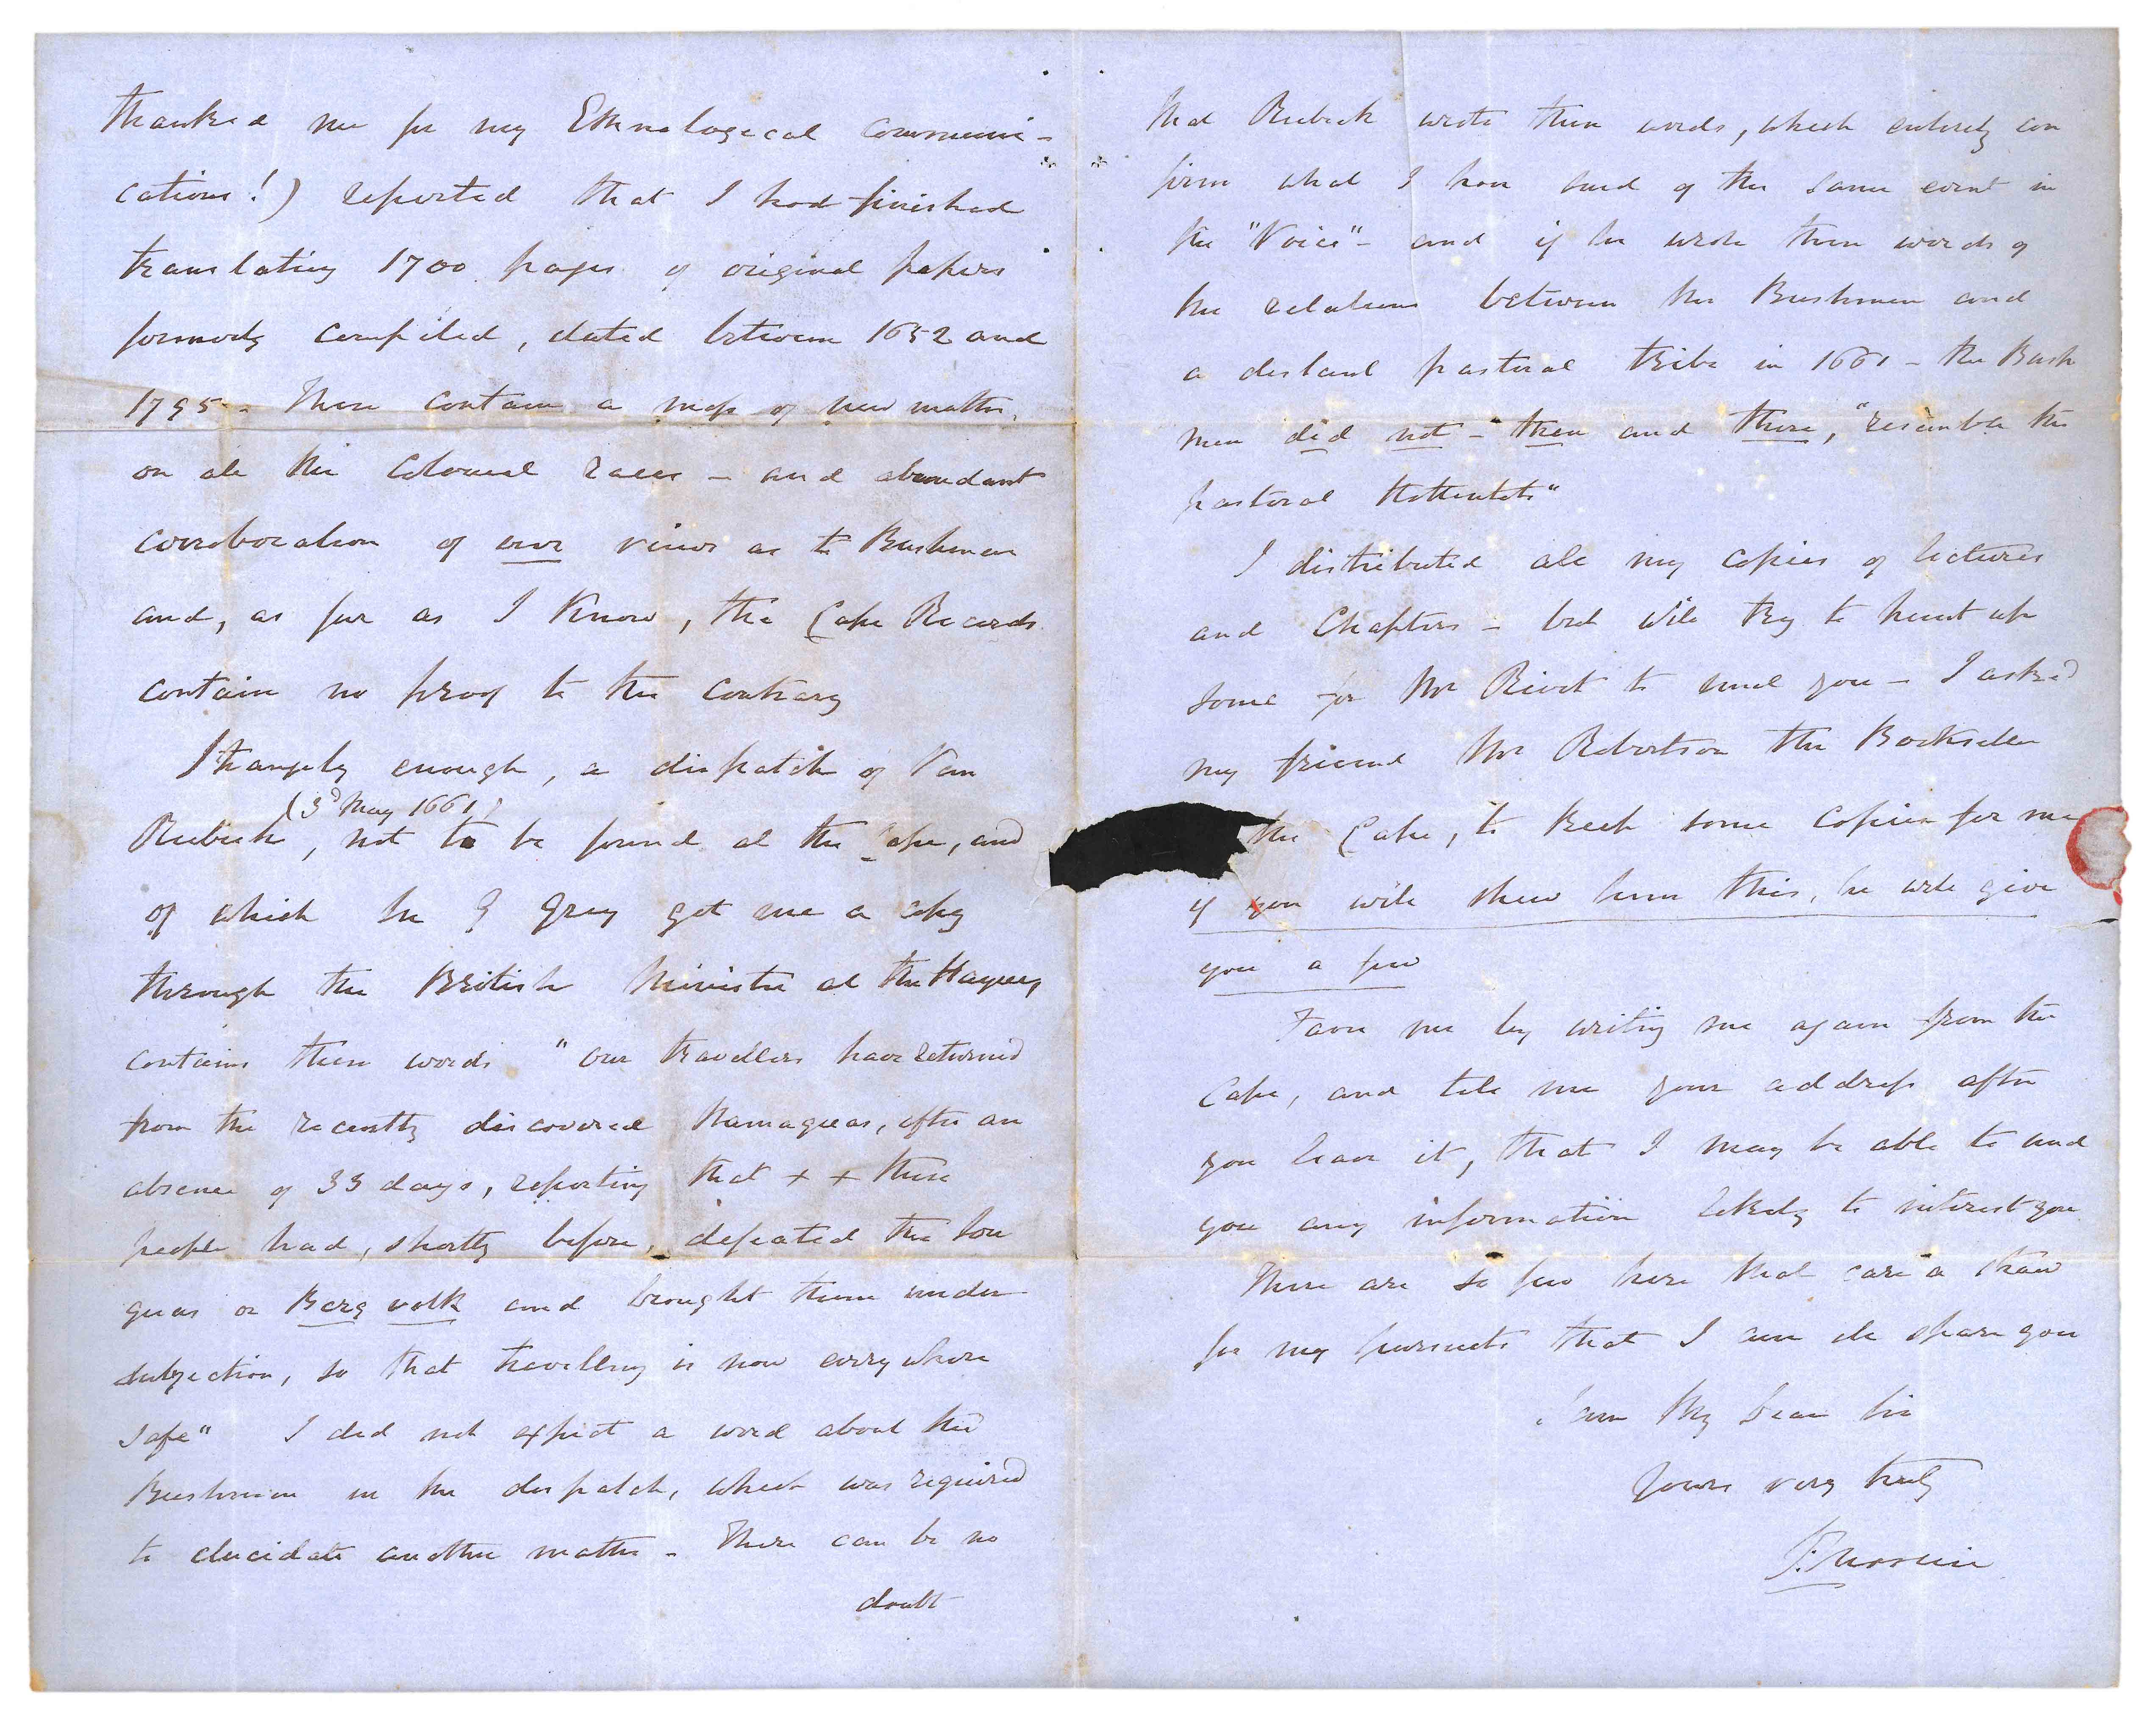 thanked me for my Ethnological Communi-
cations!) reported that I had finished
translating 1700 pages of original papers
formerly compiled, dated between 1652 and
1795 - These contain a mass of new matter,
on all the Colonial races - and abundant
corroboration of our views as to Bushmen
and, as far as I know, the Cape Records
contain no proof to the contrary
Strangely enough, a dispatch of Van
(3d May 1661)
Riebeck, not to be found at the Cape, and
of which Sir G Grey got me a copy
through the British Minister at the Hague,
contains these words "our travellers have returned
from the recently discovered Namaquas, after an
absence of 33 days, reporting that + + these
people had, shortly before, defeated the Son
quas or Berg volk and brought them under
subjection, so that travelling is now every where
safe" I did not expect a word about the
Bushmen in the dispatch, which was required
to elucidate another matter - There can be no
doubt
that Riebeck wrote these words, which entirely con
firm what I have said of the same event in
the "Voice" - and if he wrote these words of
the relations between the Bushmen and
a distant pastoral tribe in 1661 - the Bush
men did not - then and there, "resemble the
pastoral Hottentots"
I distributed all my copies of lectures
and Chapters - but will try to hunt up
some for Mr Rivet to send you - I asked
my friend Mr Robertson the Bookseller
the Cape, to keep some copies for me
if you will shew him this, he will give
you a few
Favor me by writing me again from the
Cape, and tell me your address after
you leave it, that I may be able to send
you any information likely to interest you
There are so few here that care a straw
for my pursuits that I am to spare you
I am My Dear Sir
Yours very truly
D. Moodie